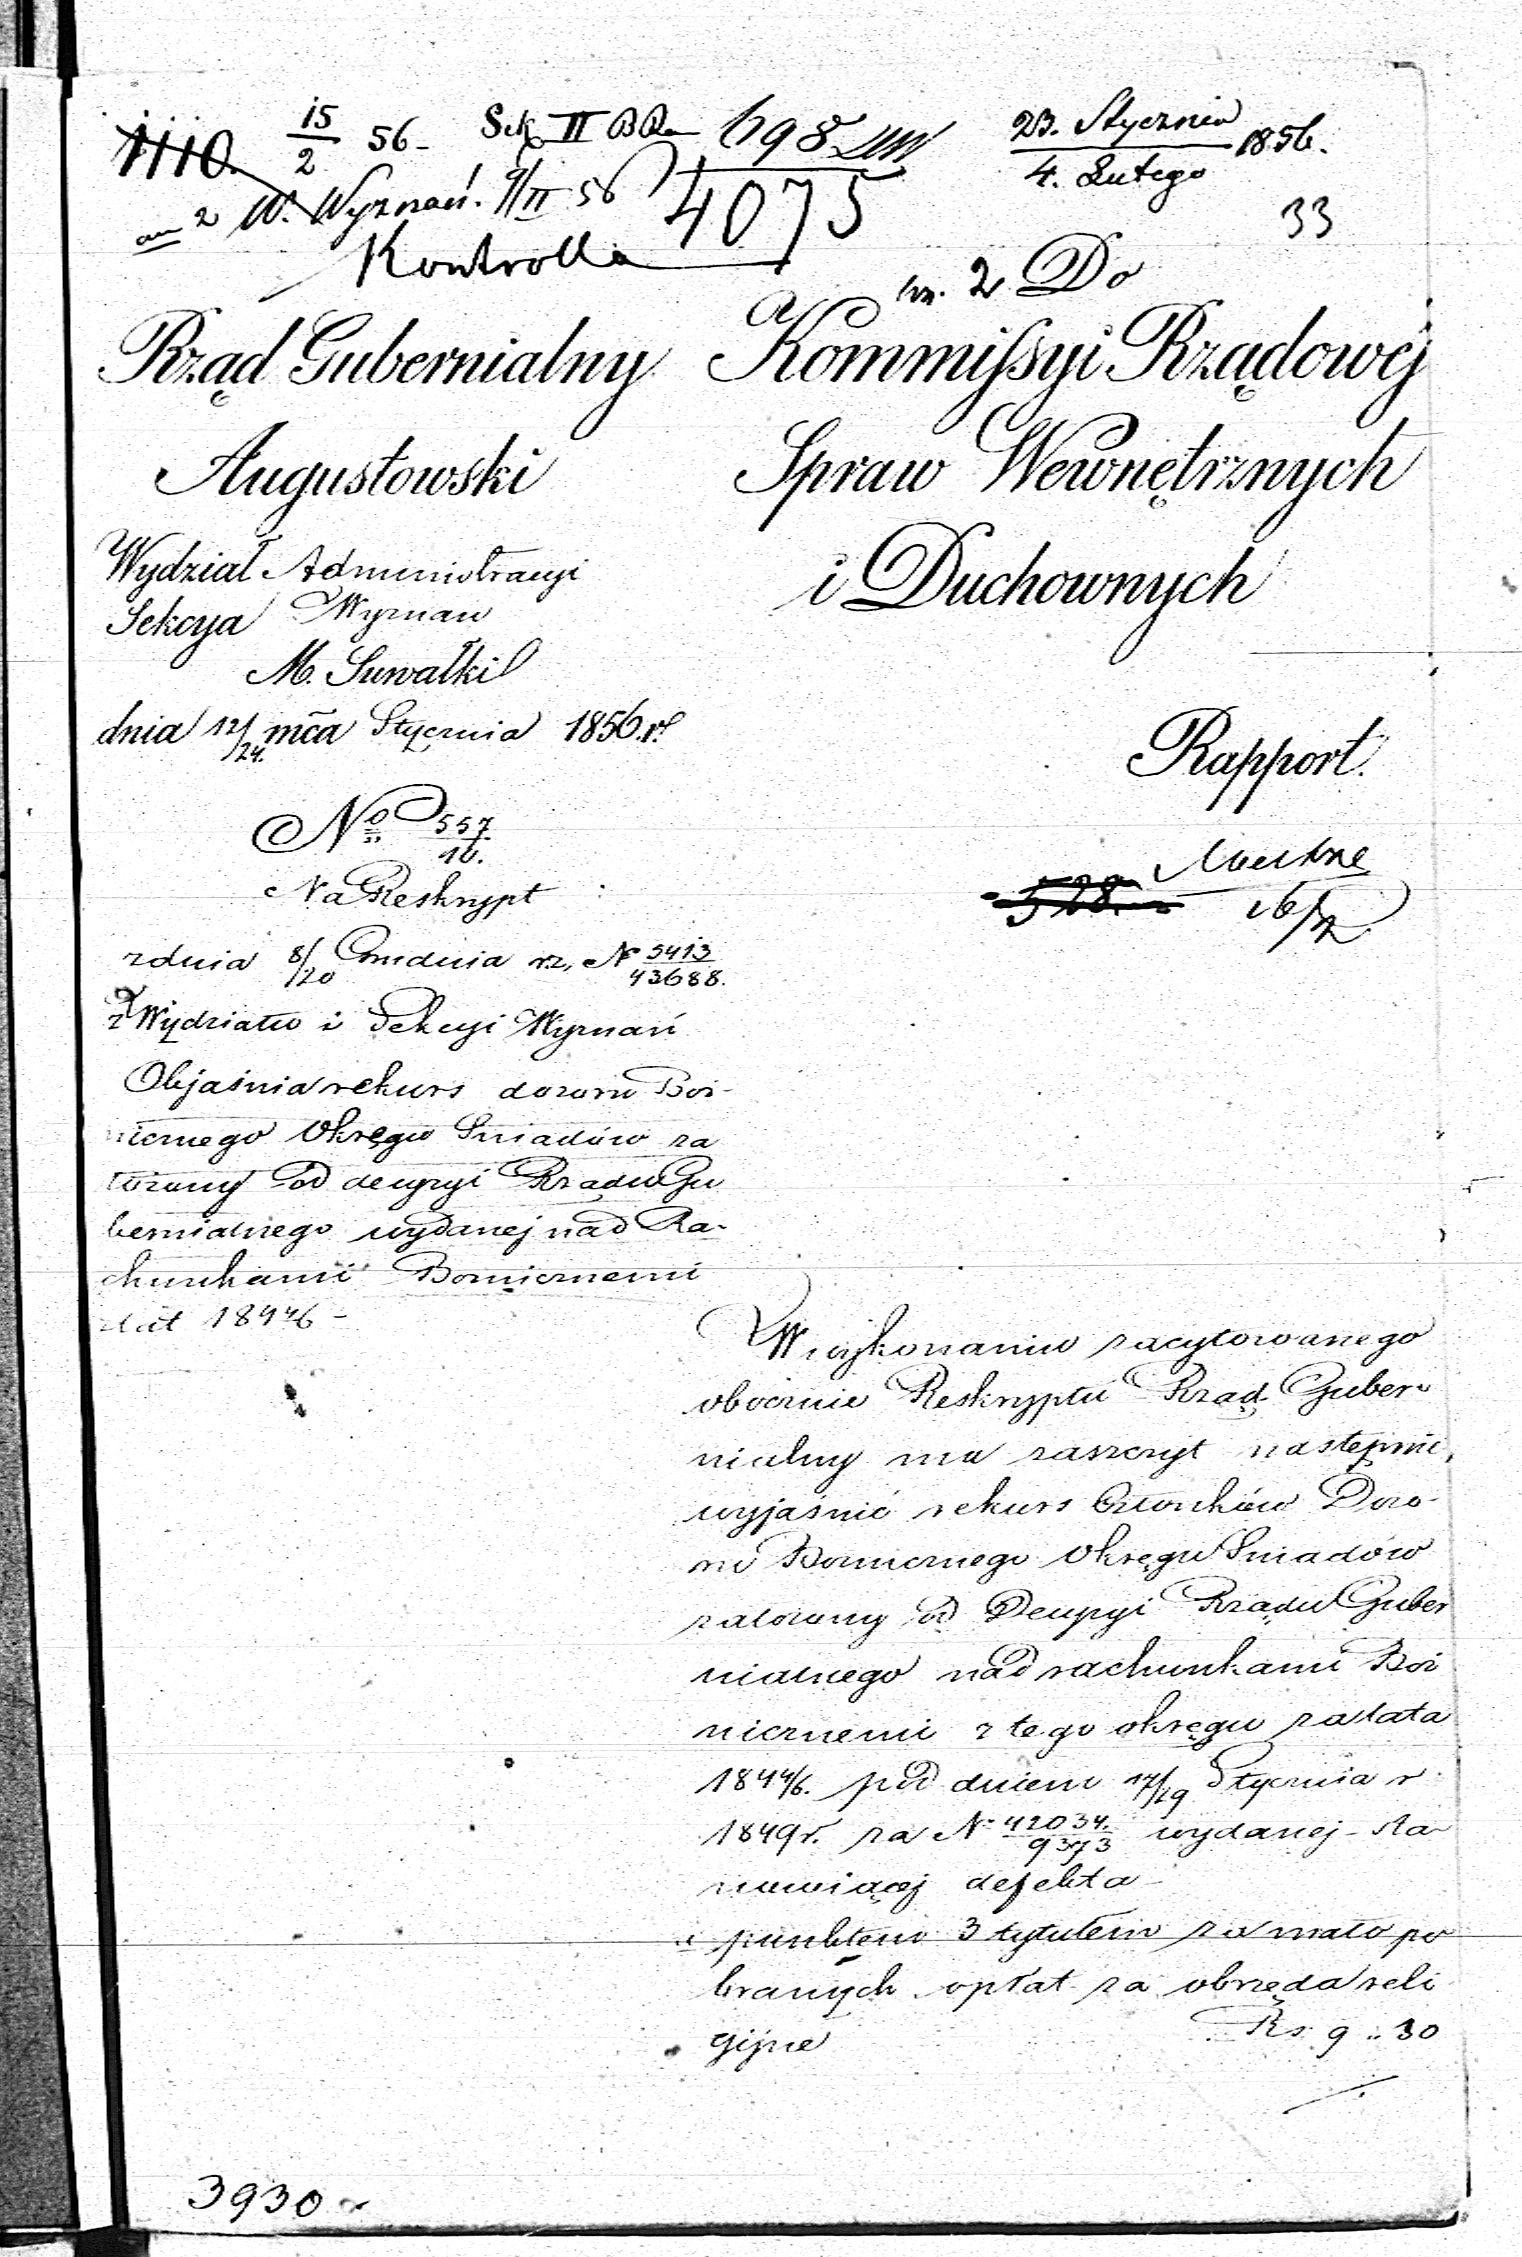 1110. 15/2 56 - Sek II 698
23. Stycznia / 4. Lutego 1856.
2 W. Wyznań. 9/II 56 4075
33
Kontrolla
2 Do
Rząd Gubernialny
Augustowski
Wydział Administracyi
Sekcya Wyznań
M. Suwałki
dnia 12/24. mca Stycznia 1856.r.
No 557/10.
Na Reskrypt
z dnia 8/20 Grudnia r.z. No 5413/43688.
z Wydziału i Sekcyi Wyznań
Objaśnia rekurs dozoru Boż-
nicznego Okręgu Sniadów za
łożony od decyzyi Rządu Gu
bernialnego wydanej nad Ra-
chunkami Bożnicznemi
lat 1844/6 -
Kommissyi Rządowej
Spraw Wewnętrznych
i Duchownych
Rapport.
528.
16/2
W wykonaniu zacytowanego
obocznie Reskryptu Rząd Guber-
nialny ma zaszczyt następnie
wyjaśnić rekurs Członków Dozo-
ru Bożnicznego Okręgu Sniadów
założony od Decyzyi Rządu Guber
nialnego nad rachunkami Boż
nicznemi z tego okręgu za lata
1844/6. pod dniem 17/29 Stycznia r
1849 r. za No 42034./9373 wydanej - sta-
nowiącej defekta -
punktem 3 tytułem za mało po
branych opłat za obrzęda reli
gijne Rs. 9 .. 30
3930